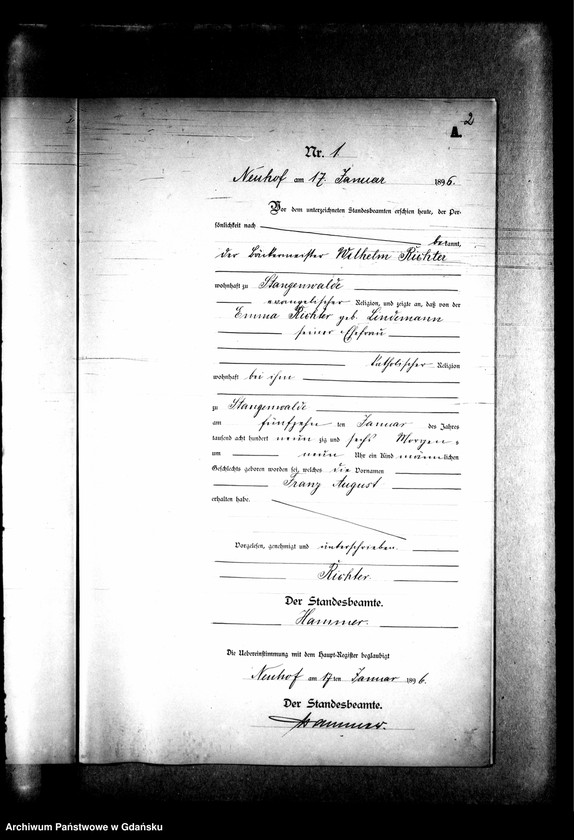 2
A.
Nr. 1
Neuhof am 17. Januar 1896.
Vor dem unterzeichneten Standesbeamten erschien heute, der Per-
sönlichkeit nach
bekannt,
der Bäckermeister Wilhelm Richter
wohnhaft zu Stangenwalde
evangelischer Religion, und zeigte an, daß von der
Emma Richter geb. Lindemann
seiner Ehefrau
katholischer Religion
wohnhaft bei ihm
zu Stangenwalde
am fünfzehn ten Januar des Jahres
tausend acht hundert neun zig und sechs Morgens
um neun Uhr ein Kind männlichen
Geschlechts geboren worden sei, welches die Vornamen
Franz August
erhalten habe.
Vorgelesen, genehmigt und unterschrieben
Richter
Der Standesbeamte.
Hammer.
Die Uebereinstimmung mit dem Haupt-Register beglaubigt
Neuhof am 17ten Januar 1896.
Der Standesbeamte.
Hammer.
Archiwum Państwowe w Gdańsku